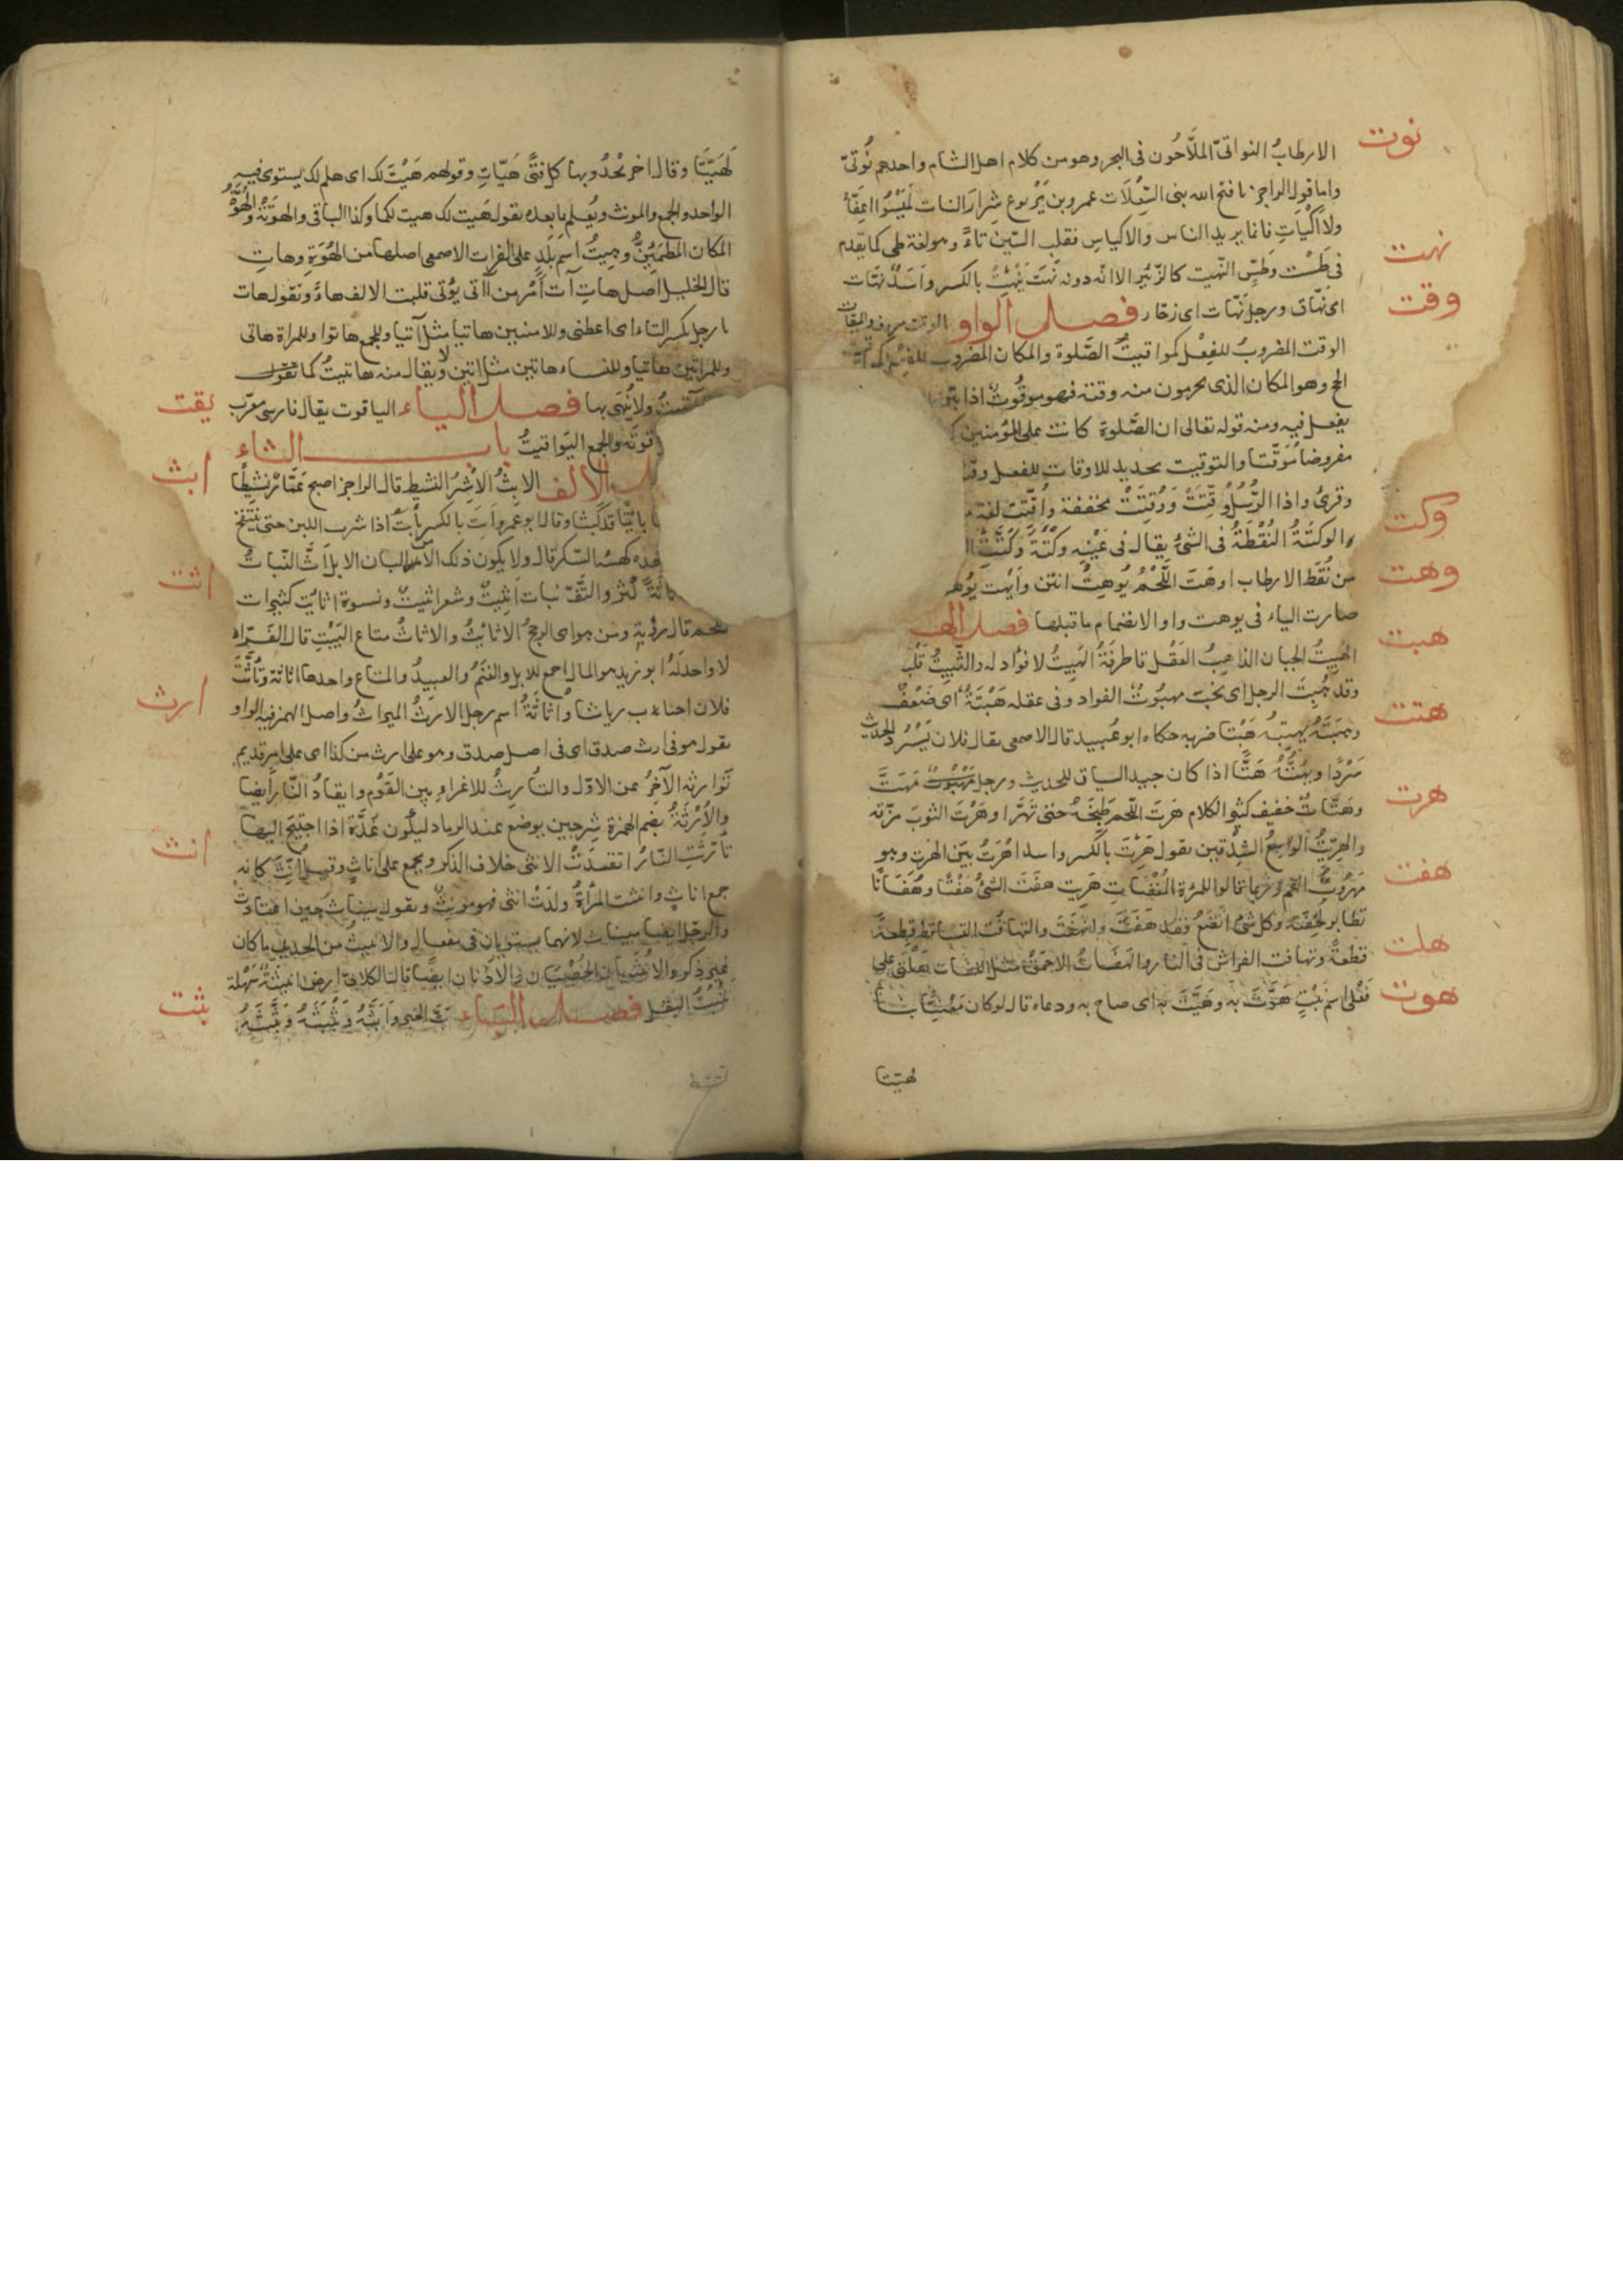 نوت
الارطابُ النواتىّ الملَّاحُون فى البحر وهو من كلام اهل الشام واحدهم نُوتىّ
واما قول الراجز يا قبح الله بنى السِّعْلَات عمرو بن يَرْبوع شرارَ النات لَيْسُوا اعِفَّاءُ
ولا اكْيَاتِ فانما يريد الناس والاكياس فقلب السّين تاءً وهو لغة طى كما تقدم
نهت
فى طَسْت وَطَسٍّ النّهيت كالزّئير الا انّه دونه نَهَتَ يَنْهِتُ بالكسر واَسَدٌ نَهّات
وقت
اى نهّاق ورجل نَهّات اى زحّار فصل الواو الوقت معروف والميقات
الوقت المضروبُ للفِعْل كمواقيتُ الصَّلوة والمكان المضروب للفعْل
الحج وهو المكان الذى يحرمون منه وقته فهو موقُوتٌ اذا بيّن
يفعل فيه ومنه قوله تعالى ان الصَّلوة كانت على المؤمنين
مفروضا مُوَقّتا والتوقيت تحديد للاوقات للفعل
وقرئ واذا الرُّسُلُ وُقِّتَتْ وَوُقِتَتْ مخففة واُقِّتَتْ لغة
وكت
والوكتَةُ النُقْطَةُ فى الشئُ يقال فى عَيْنِه وَكْتَةٌ وَكَتَتْ
وهت
من نُقَط الارطاب اوهَتَ اللَّحْمُ يُوهِتُ انتن وَاَيْهت
صارت الياء فى يوهت واوا لانضمام ما قبلها فصل الهاء
هبت
الهَبِيتُ الجبان الذاهِبُ العَقْل قال طرفَةُ الهَبِيتُ لا فؤاد له والثَّبِيتُ
وقد هُبِتَ الرجل اى نخب مهبُوتُ الفواد وفى عقله هَبْتَةٌ اى ضَعْفٌ
هتت
وهَبَتَهُ يهبِتُهُ هَبْتا ضربه حكاه ابو عُبيد قال الاصمعى يقال فلان يَسْرُد الحديث
سَرْدًا ويهُتُّهُ هَتًّا اذا كان جيد السياق للحديث ورجل مِهَتٌّ
هرت
وهَتَّاتٌ خفيف كثير الكلام هَرَتَ اللّحم طَبخَهُ حتى تَهَرَّا وهَرَتَ الثوبَ مزّقه
والهَرِيتُ الواسِعُ الشِدْقين تقول هَرِتَ بالكسر واسد اهْرَتُ بيّن الهَرَت وهو
هفت
مَهْرُوت الفم وربما قالوا للمرْة المُفْضاتِ هَرِيت هفَتَ الشئُ هَفْتًا وهُفَاتًا
تطاير لخِفّته وكل شئ انخفضَ فقد هَفَتَ وانهفَتَ والتهافُت التساقط قطعةً
هلت
قطعةً وتهافت الفراش فى النار والهَفَاتُ الاحمقُ مثل اللفَات هَلْتَى على
هوت
فَعْلى اسم نَبْتٍ هَوَّتَ به وَهَيَّتَ به اى صاح به ودعاه قال لو كان مَعْنِيًّا بنا
هيّتا
لَهَيَّتَا وقال اخر يَحْدُو بها كل فتًى هَيّاتِ وقولهم هَيْتَ لك اى هلم لك يستوى فيه
الواحد والجمع والمونث ويُعلم بما بعده تقول هَيت لك هيت لكما وكذا الباقى والهوتَةُ والهُوّةُ
المكان المطمَئِنُّ وهِيتُ اسم بَلَدٍ على الفرات الاصمعى اصلها من الهُوَّةِ وهاتِ
قال الخليل اصل هاتِ آت اَمْر من آتى يُؤتى قلبت الالف هاءً وتقول هات
يا رجل بكسر التاء اى اعطنى وللاثنين هاتيا مثل آتيا وللجمع هاتوا وللمراة هاتى
وللمراتين هاتيا وللنساء هاتين مثل اتين ولا يقال منه هاتيتُ كما تقول
يقت
ولا يُنهى بها فصل الياء الياقوت يقال فارسى معرّب
قوتَة والجمع اليَواقيتُ باب الثاء
ابث
الالف الابِثُ الاَشِرُ النشيط قال الراجز اصبح عَمَّارٌ نشِيطًا
قد كَبَثا وقال ابو عمرو اَبِثَ بالكسر يأبَث اذا شرب اللبن حتى ينتفخ
كهيئة السّكر قال ولا يكون ذلك الا من البان الابل اثَّ النّباتُ
اثث
كثر والتفّ نبات اَثيثٌ وشعر اثيثٌ ونسوة اثايث كثيرات
قال رؤبة ومن هواى الرجحُ الاثايثُ والاثاثُ متاع البَيْتِ قال الفَرّاء
لا واحد لَهُ ابو زيد هو المال اجمع للابل والغنَمُ والعبيدُ والمتاع واحدها اثاثة وتاثّثَ
ارث
فلان اصاب رياشا واُثاثَةُ اسم رجل الارثُ الميراثُ واصل الهمز فيه الواو
تقول هو فى ارث صدق اى فى اصل صدق وهو على ارث من كذا اى على امر قديم
تَوَارثه الآخِرُ عن الاوّل والتأريثُ للاغراءِ بين القَوْم وايقادُ النَّار ايضا
والاُرْثَةُ بضم الهمزة سِرجين يوضع عند الرماد ليكون عُدَّة اذا احتيجَ اليها
انث
تأرّثتِ النّارُ اتقَدتْ الانثى خلاف الذكر ويجمع على اناث وقيل اُنُثٌ كانه
جمع اناث وانثت المرْاةُ ولدَتْ انثى فهو مونِثٌ وتقول
والرجل ايضا ميناث لانهما يستويان فى مفعال والانيثُ من الحديد ما كان
غير ذكر والانثيان الخُصْيتان والاُذنان ايضا قال الكلابى ارض انيثَةٌ سَهْلة
بثث
تُنْبِتُ البقل فصل الباء بثّ الخبر وَاَبَثَّهُ وَبَثْبَثَهُ وَبَثَّثَهُ